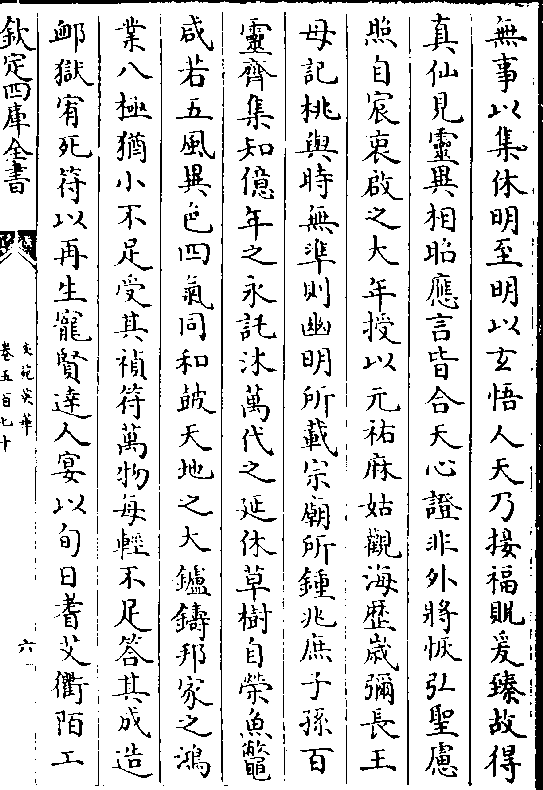 無事以集休明至明以玄悟人天乃接福貺爰臻故得
真仙見靈異相昭應言皆合天心證非外將恢弘聖慮
照自宸衷啟之大年授以元祐麻姑觀海歴歲彌長王
母記桃與時無準則幽明所載宗廟所鍾兆庶子孫百
靈齊集知億年之永託沐萬代之延休草樹自榮魚鼈
咸若五風異色四氣同和皷天地之大鑪鑄邦家之鴻
業八極猶小不足受其禎符萬物每輕不足答其成造
卹獄宥死符以再生寵賢達人宴以旬日耆艾衢陌工
欽定四庫全書
文苑英華
卷五百七十
六